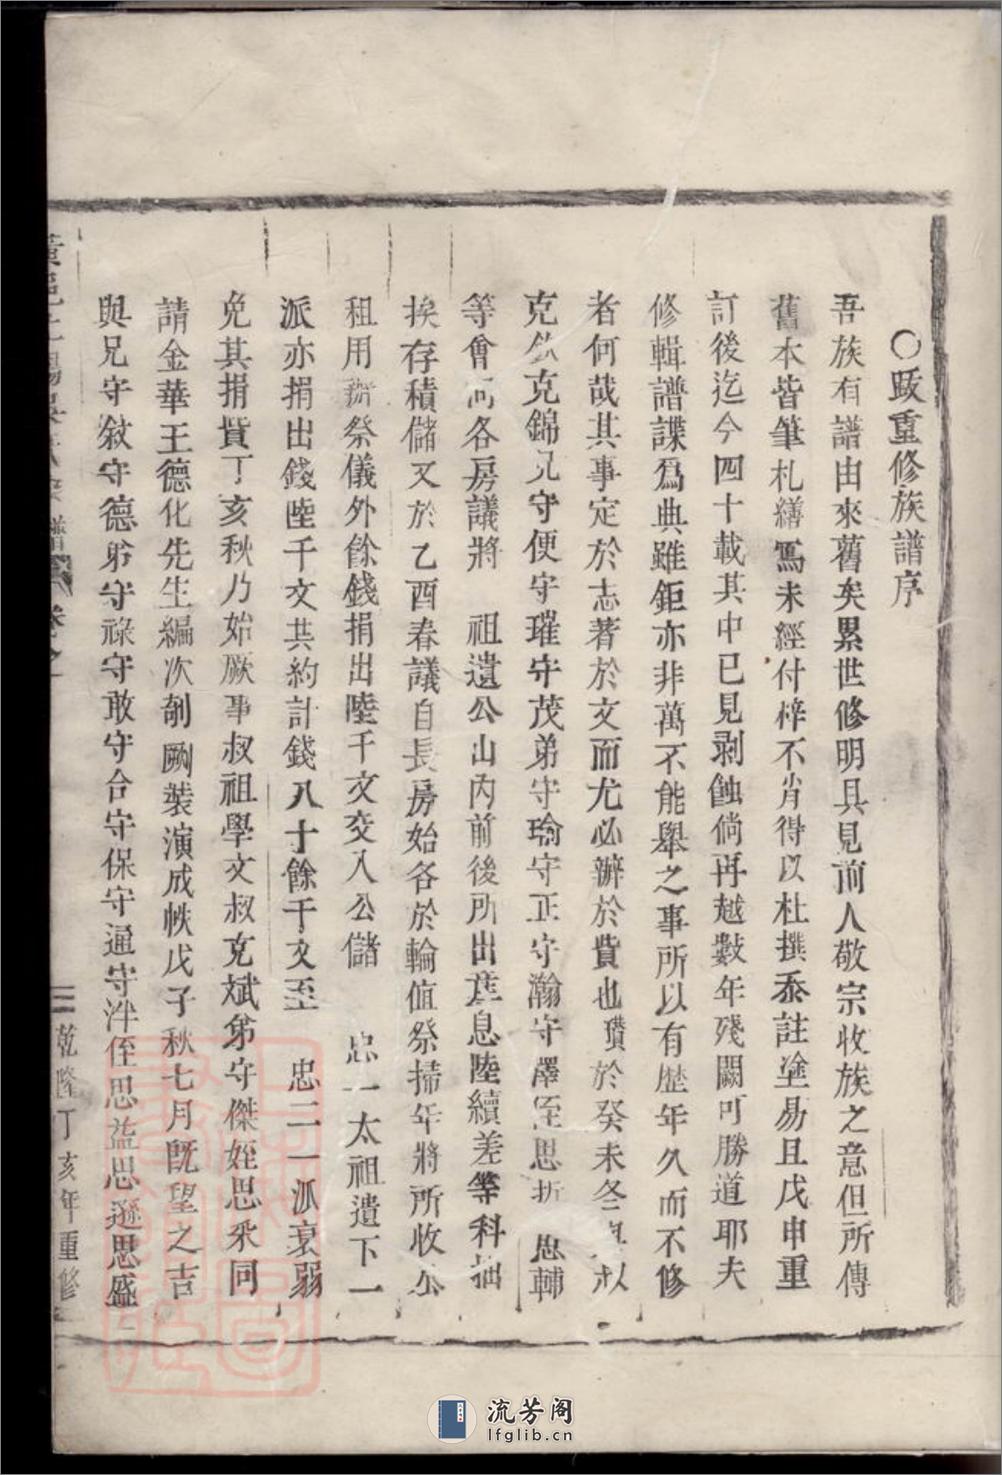 〇跋重修族譜序
吾族有譜由來舊矣累世修明具見前人敬宗收族之意但所傳
舊本皆筆札繕寫未經付梓不肖得以杜撰忝註塗易且戊申重
訂後迄今四十載其中已見剥蝕倘再越數年殘闕可勝道耶夫
修輯譜諜爲典雖鉅亦非萬不能舉之事所以有歷年久而不修
者何哉其事定於志著於文而尤必辦於費也瓚於癸未冬與叔
克欽克錦兄守便守璀守茂弟守瑜守正守瀚守澤侄思折思輔
等會同各房議將 祖遺公山內前後所出產息陸續差等科抽
挨存積儲又於乙酉春議自長房始各於輪值祭掃年將所收公
租用辦祭儀外餘錢捐出陸千文交入公儲 忠一太祖遺下一
派亦捐出錢陸千文共約計錢八十餘千文至 忠二一派衰弱
免其捐貲丁亥秋乃始厥事叔祖學文叔克斌弟守傑姪思永同
請金華王德化先生編次剞劂裝演成帙戊子秋七月既望之吉
與兄守敘守德弟守祿守敢守合守保守通守泮侄思益思遜思盛
譜 卷之一
三 乾隆丁亥年重修
流芳阁
lfglib.cn